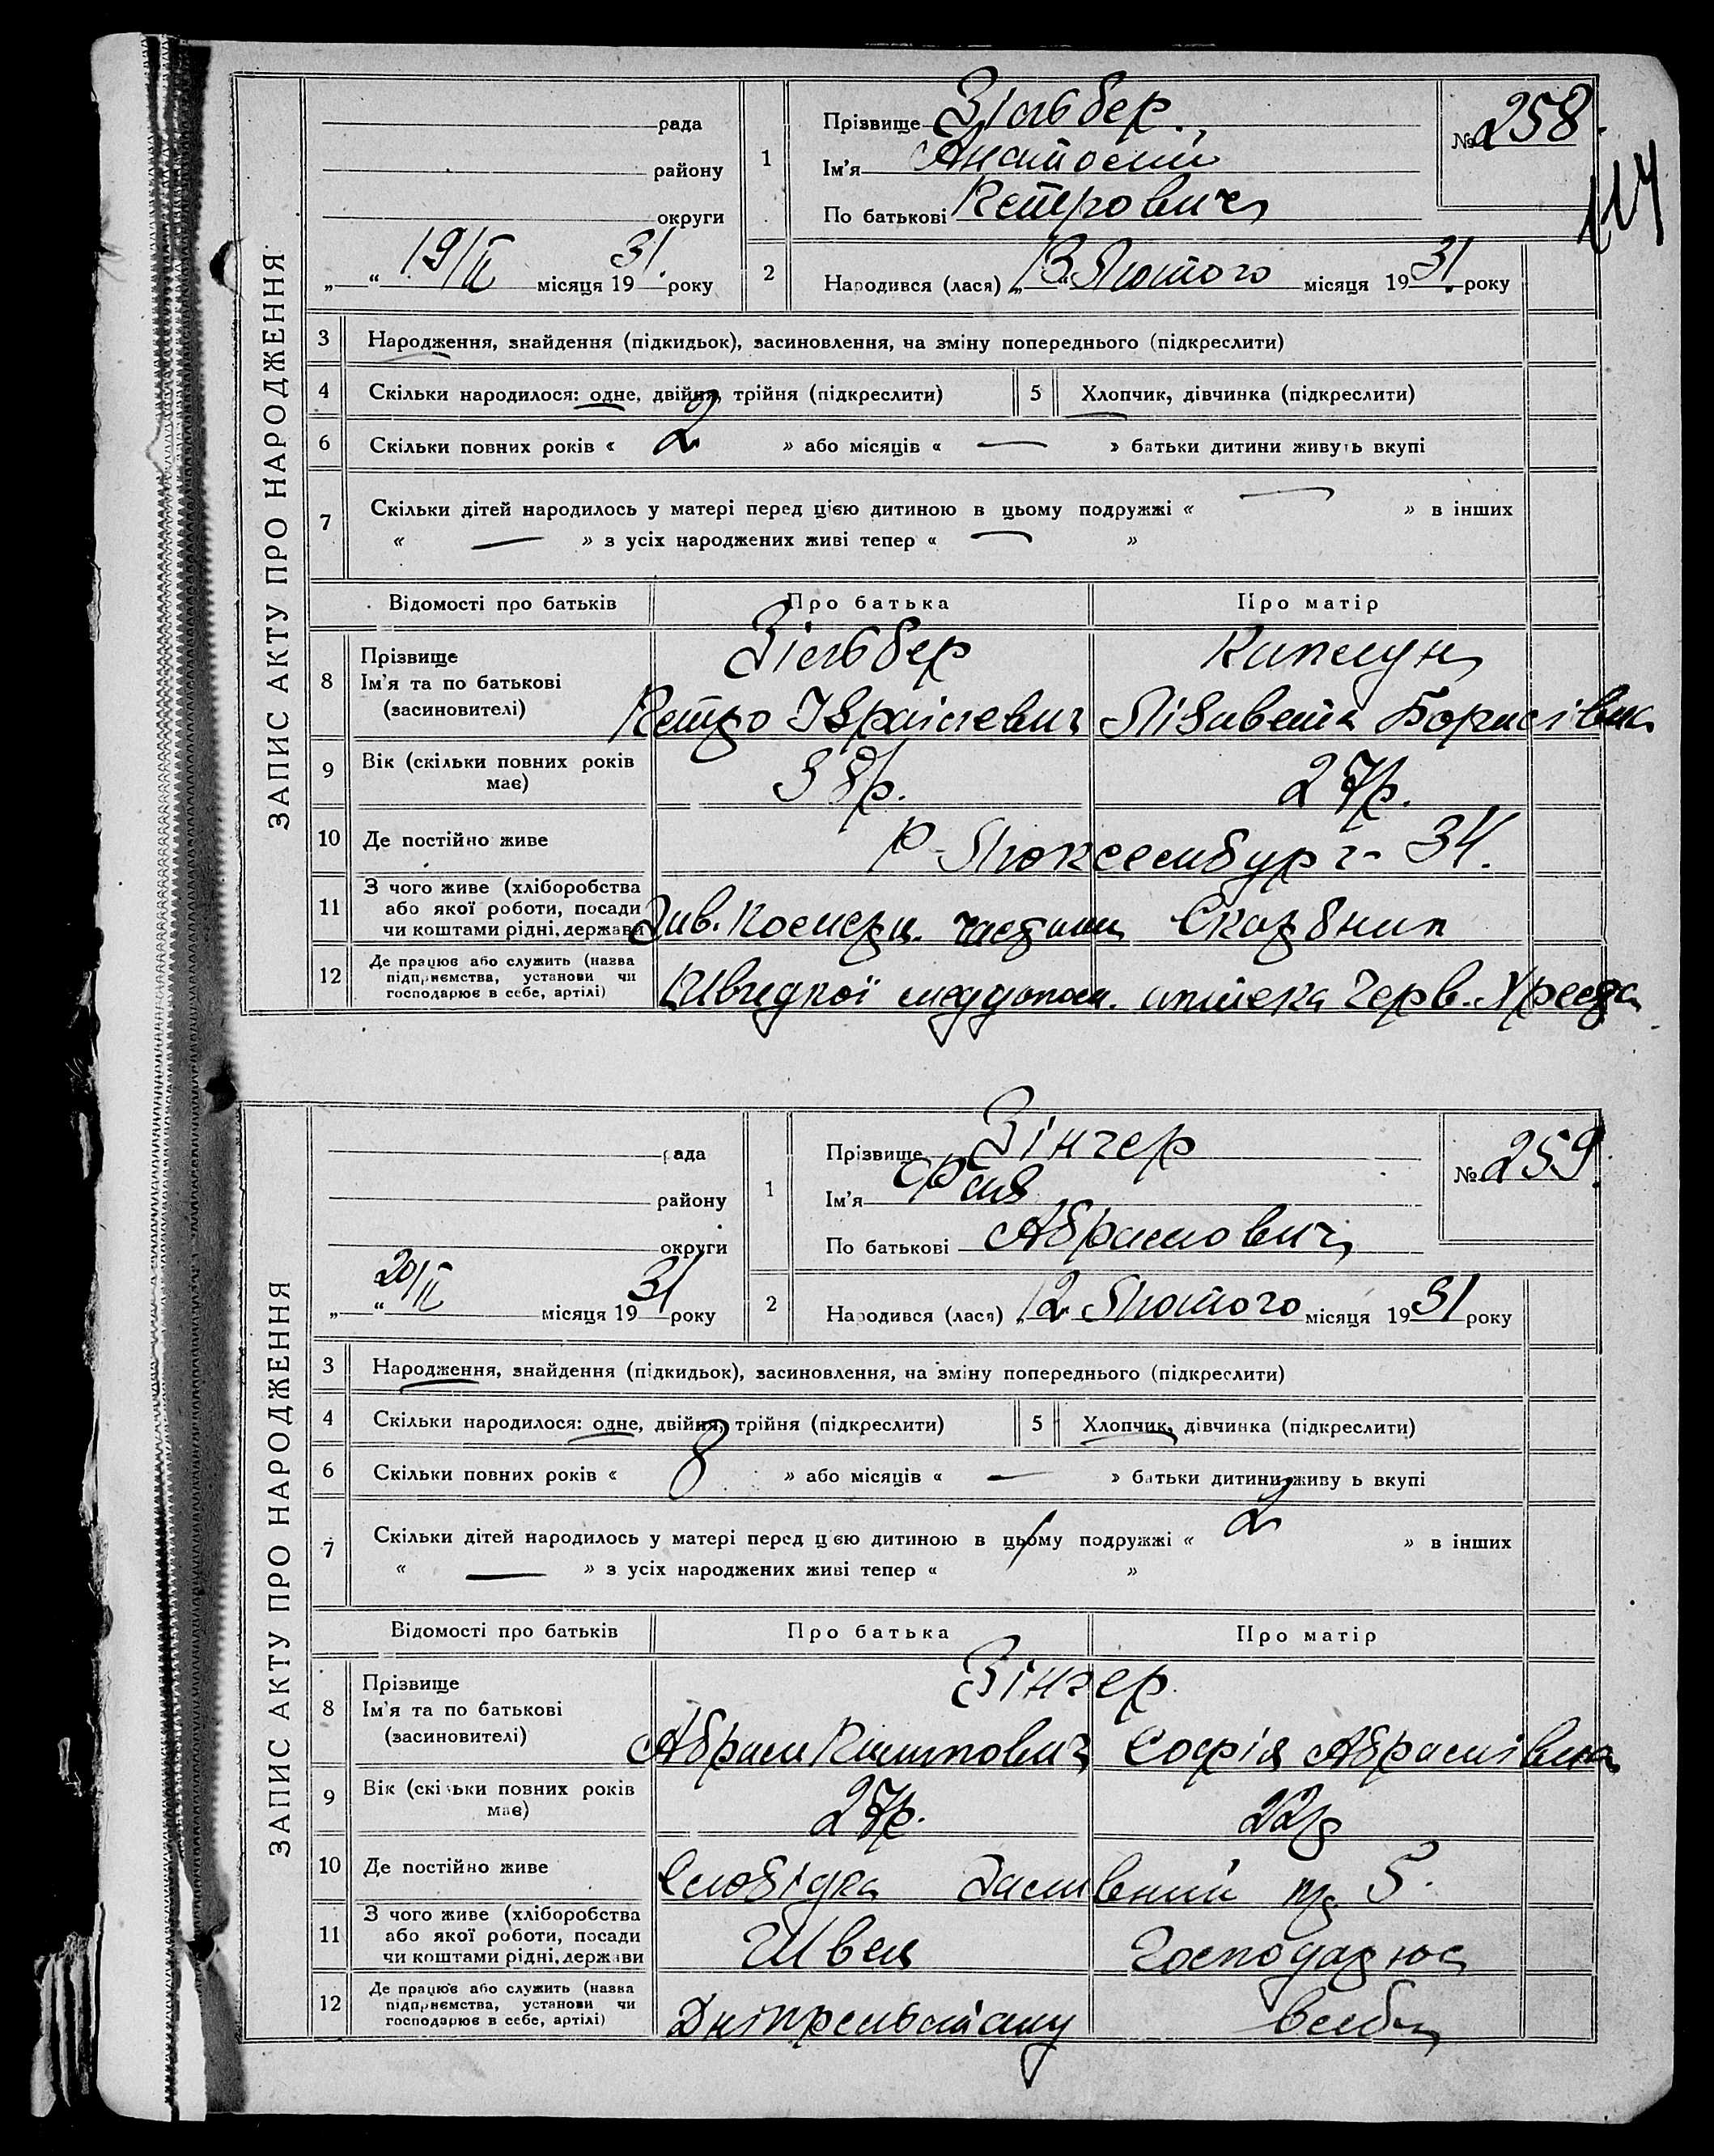 ЗАПИС АКТУ ПРО НАРОДЖЕННЯ
рада
району
округи
„ “ 19/II місяця 1931 року
1
Прізвище Зільбер.
Ім'я Анатолій
По батькові Петрович
№ 258.
114
2 Народився (лася) „13“ Лютого місяця 1931 року
3 Народження, знайдення (підкидьок), засиновлення, на зміну попереднього (підкреслити)
4 Скільки народилося: одне, двійня, трійня (підкреслити)
5 Хлопчик, дівчинка (підкреслити)
6 Скільки повних років « 2 » або місяців « — » батьки дитини живуть вкупі
7 Скільки дітей народилось у матері перед цією дитиною в цьому подружжі « — » в інших
« — » з усіх народжених живі тепер « — »
Відомості про батьків Про батька Про матір
8 Прізвище
Ім'я та по батькові
(засиновителі)
Зільбер
Петро Ізраілевич
Каплун
Лізавета Борисівна
9 Вік (скільки повних років
має)
38р. 27р.
10 Де постійно живе Р-Люксембург - 34.
11 З чого живе (хліборобства
або якої роботи, посади
чи коштами рідні, держави
Зав. Комерц. частини Скарбник
12 Де працює або служить (назва
підприємства, установи чи
господарює в себе, артілі)
Швидкої меддопом. аптека Черв. Хреста
ЗАПИС АКТУ ПРО НАРОДЖЕННЯ
рада
району
округи
„ “ 20/II місяця 1931 року
1
Прізвище Зінгер
Ім'я
По батькові Абрамович
№ 259.
2 Народився (лася) „12 Лютого місяця 1931 року
3 Народження, знайдення (підкидьок), засиновлення, на зміну попереднього (підкреслити)
4 Скільки народилося: одне, двійня, трійня (підкреслити)
5 Хлопчик, дівчинка (підкреслити)
6 Скільки повних років « 8 » або місяців « — » батьки дитини живу ь вкупі
7 Скільки дітей народилось у матері перед цією дитиною в цьому подружжі « 2 » в інших
« — » з усіх народжених живі тепер « 1 »
Відомості про батьків Про батька Про матір
8 Прізвище
Ім'я та по батькові
(засиновителі)
Зінгер
Абрам Софія Абрамівна
9 Вік (скільки повних років
має)
27р. 22р
10 Де постійно живе Слобідка 5.
11 З чого живе (хліборобства
або якої роботи, посади
чи коштами рідні, держави
Швець Господарює
12 Де працює або служить (назва
підприємства, установи чи
господарює в себе, артілі)
в себе